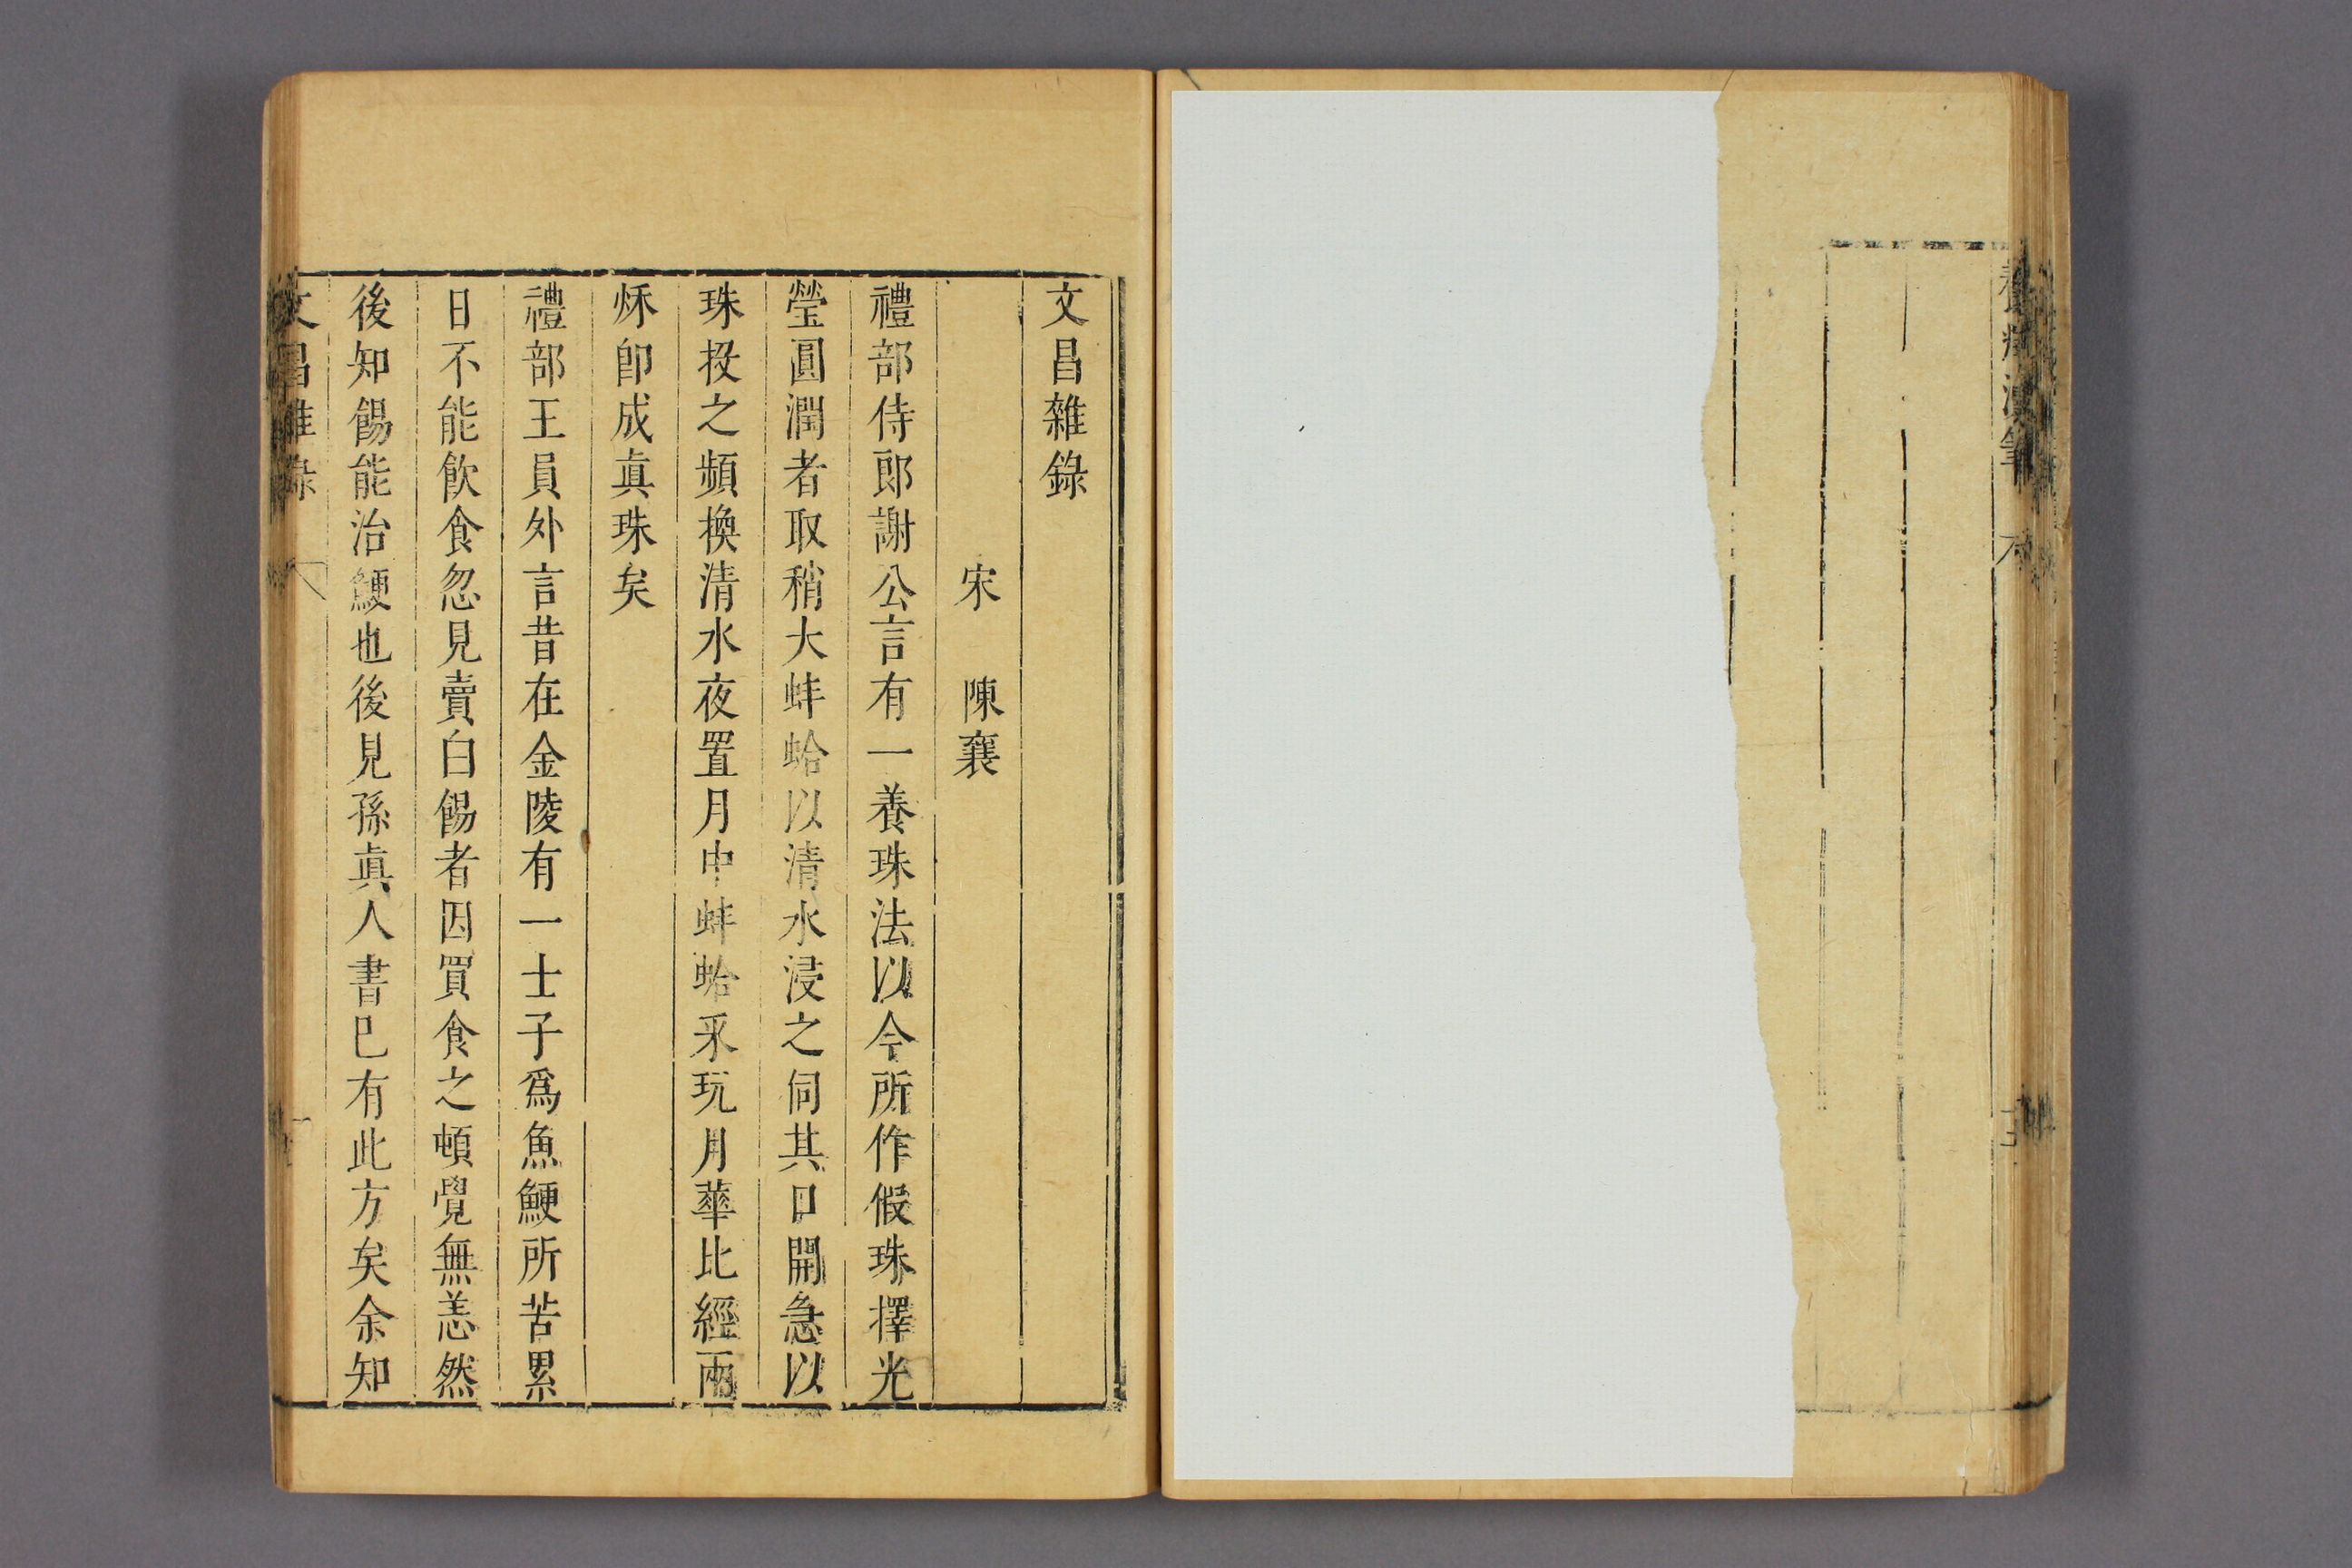 文昌雜錄
宋 陳襄
禮部侍郎謝公言有一養珠法以今所作假珠擇光
瑩圓潤者取稍大蚌蛤以清水浸之伺其口開急以
珠投之頻換清水夜置月中蚌蛤采玩月華比經兩
秌卽成眞珠矣
禮部王員外言昔在金陵有一士子爲魚鯁所苦累
日不能飮食忽見賣白餳者因買食之頓覺無恙然
後知餳能治鯁也後見孫眞人書巳有此方矣余知
文昌雜錄